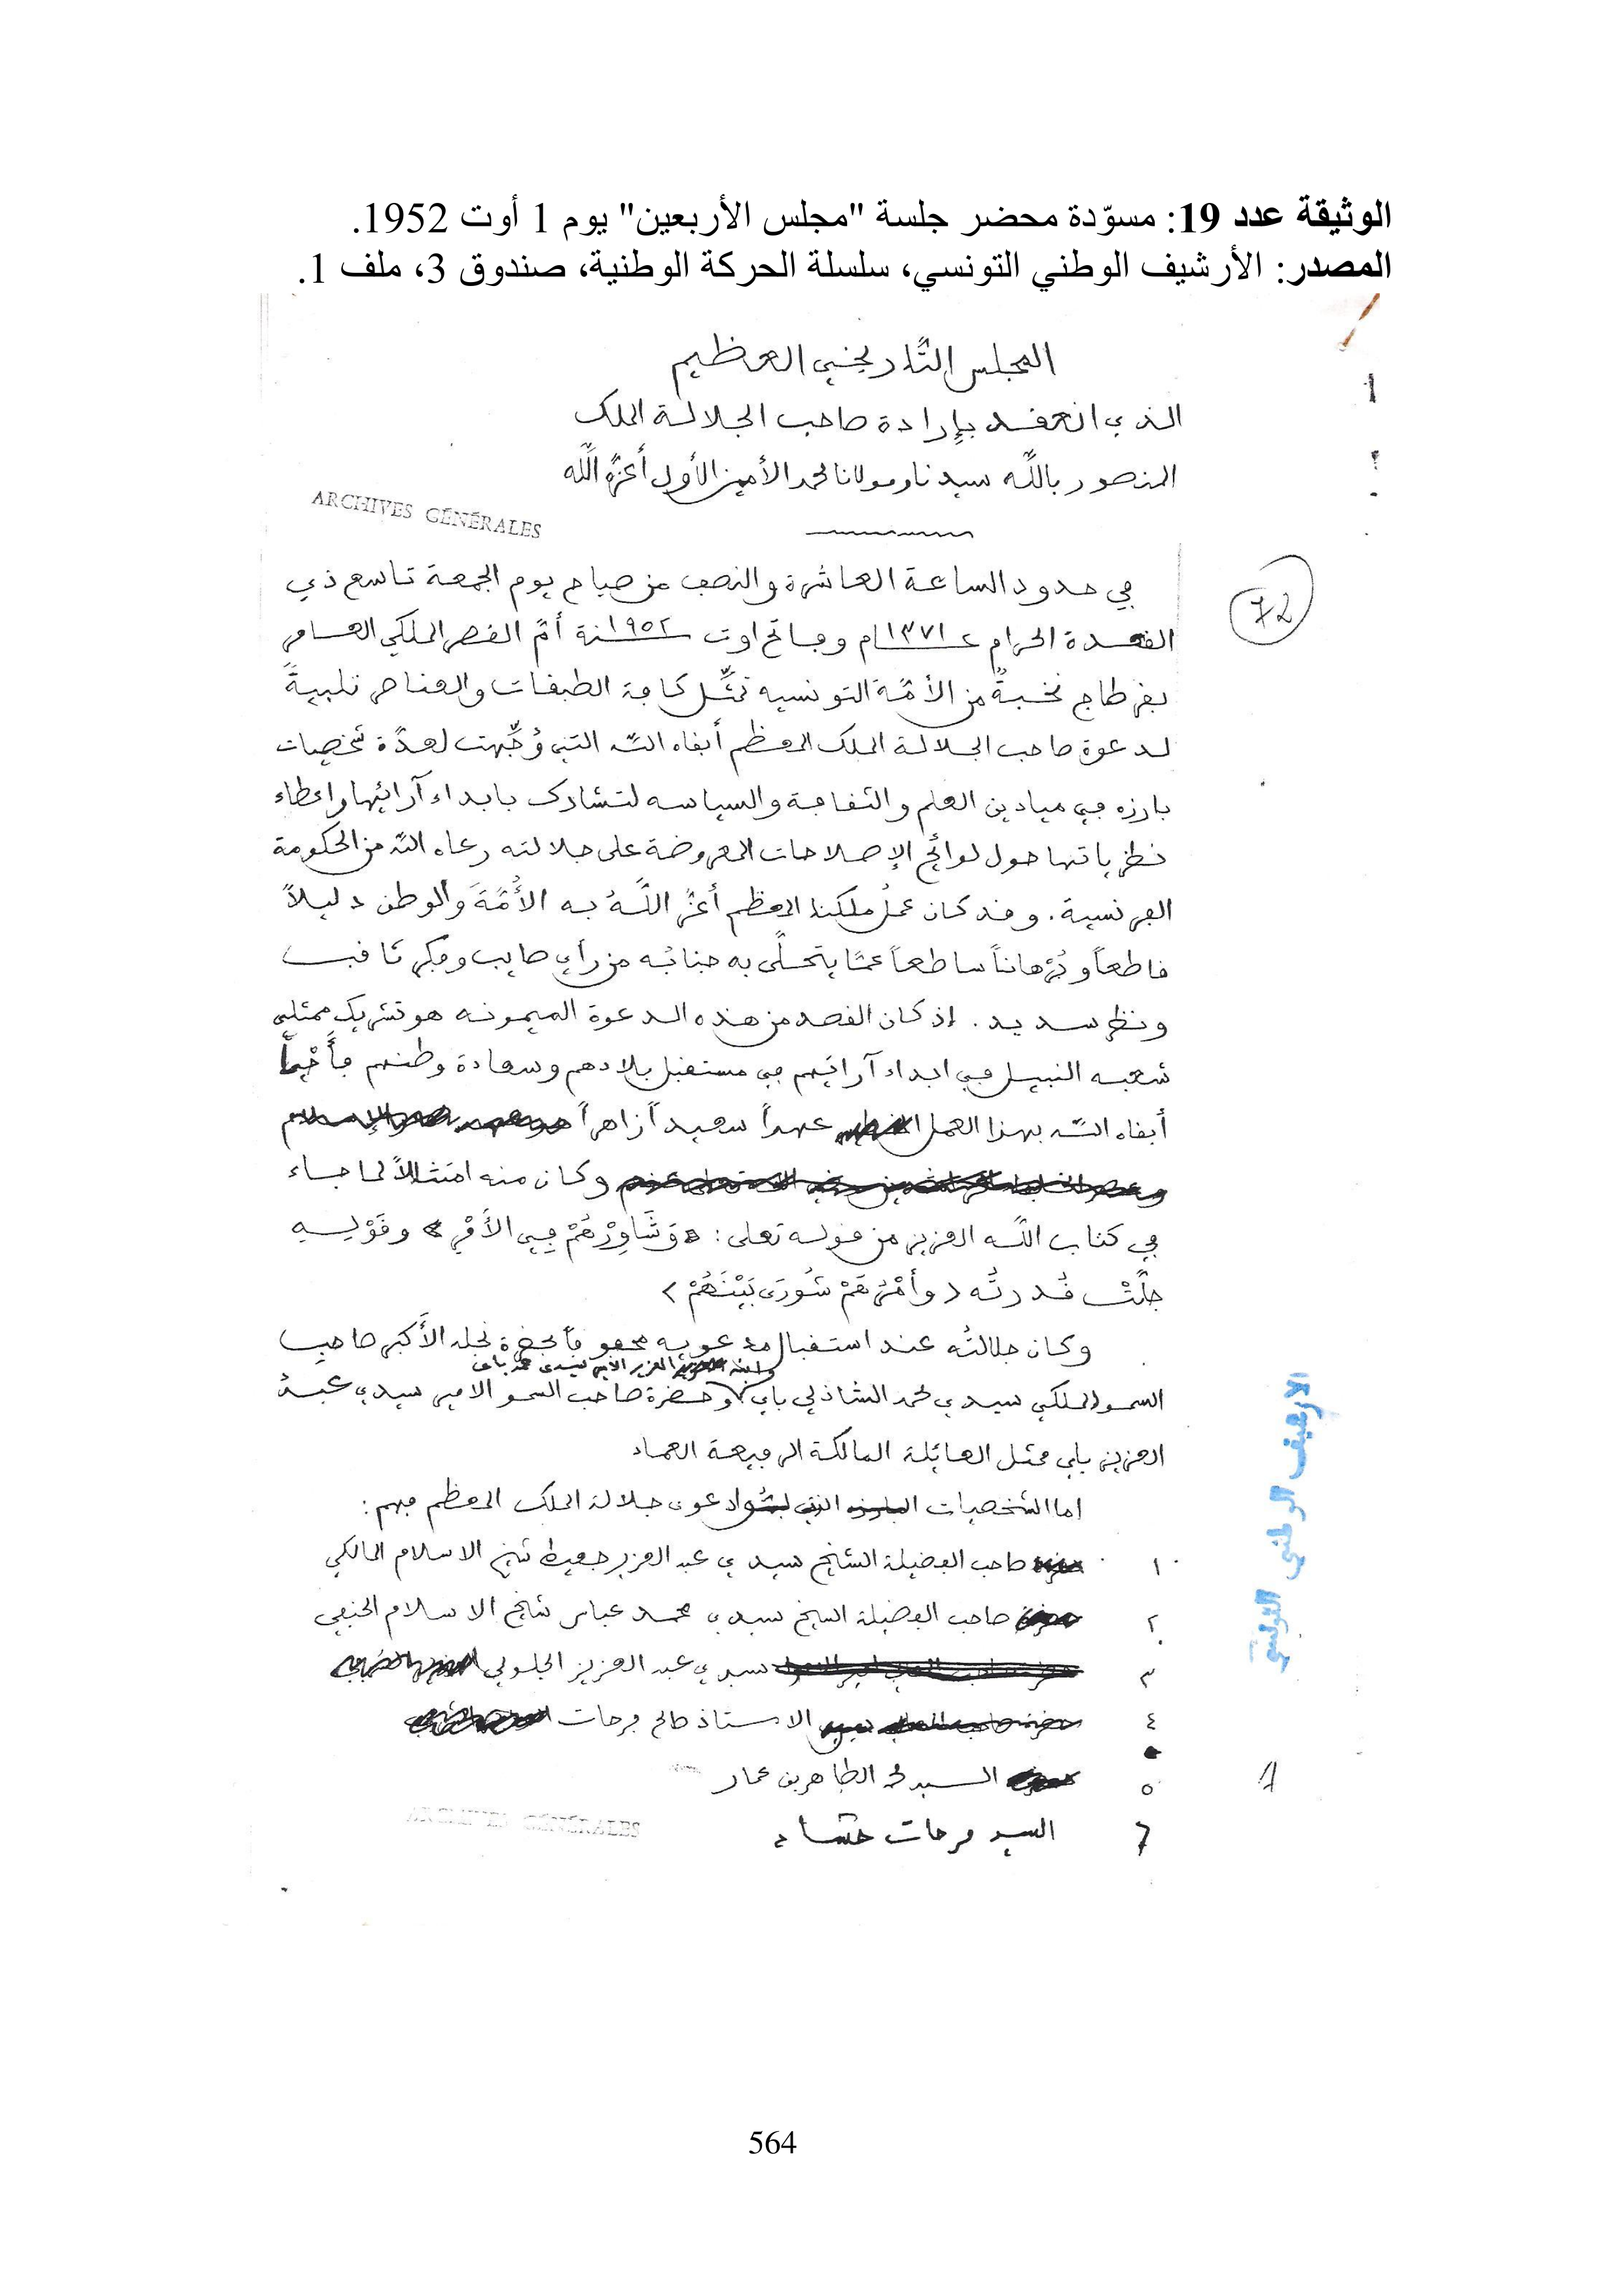 الوثيقة عدد 19: مسوّدة محضر جلسة "مجلس الأربعين" يوم 1 أوت 1952.
المصدر: الأرشيف الوطني التونسي، سلسلة الحركة الوطنية، صندوق 3، ملف 1.
المجلس التّاريخي العظيم
الذي انعقد بإرادة صاحب الجلالة الملك
المنصور باللّه سيدنا ومولانا محمد الأمين الأول أعزّه اللّه
ARCHIVES GÉNÉRALES
في حدود الساعة العاشرة والنصف من صباح يوم الجمعة تاسع ذي
72
القعدة الحرام عـ١٣٧١ـام وفاتح اوت ١٩٥٢ سنة أمّ القصر الملكي العامر
بقرطاج نخبةٌ من الأمّة التونسيه تمثّل كافة الطبقات والعناصر تلبيةً
لدعوة صاحب الجلالة الملك المعظم أبقاه اللّه التي وُجّهت لعدّة شخصيات
بارزه في ميادين العلم والثقافة والسياسه لتشارك بابداء آرائها واعطاء
نظرياتها حول لوائح الإصلاحات المعروضة على جلالته رعاه اللّه من الحكومة
الفرنسية. وقد كان عملُ ملكنا المعظم أعزّ اللّهُ به الأُمّةَ والوطن دليلاً
قاطعاً وبُرْهاناً ساطعاً عمّا يتحلّى به جنابُه من رأي صايب وفكر ثاقب
ونظر سديد. إذ كان القصد من هذه الدعوة الميمونه هو تشريك ممثلي
شعبه النبيل في ابداء آرائهم في مستقبل بلادهم وسعادة وطنهم فأَحْيَا
أبقاه اللّه بهذا العمل عهداً سعيداً زاهراً
وكان منه امتثالاً لما جاء
في كتاب اللّه العزيز من قوله تعلى: «وَشَاوِرْهُمْ فِي الأَمْرِ» وقَوْلِه
جلّتْ قُدرتُه (وأمْرُهُمْ شُورَى بَيْنَهُمْ)
وكان جلالتُه عند استقبال مدعويه محفوفاً بحضرة نجله الأَكبر صاحب
وابنه العزيز الامير سيدي محمد باي
السمو الملكي سيدي محمد الشاذلي باي وحضرة صاحب السمو الامير سيدي عبدُ
العزيز باي ممثل العايلة المالكة الرفيعة العماد
اما الشخصيات دعوى جلالة الملك المعظم فهم:
١ صاحب الفضيلة الشيخ سيدي عبد العزيز جعيط شيخ الاسلام المالكي
٢ صاحب الفضيلة الشيخ سيدي محمد عباس شيخ الاسلام الحنفي
٣ سيدي عبد العزيز الجلولي
٤ الاستاذ صالح فرحات
٥ السيد محمد الطاهر بن عمار
1
6 السيد فرحات حشاد
ARCHIVES GÉNÉRALES
الارشيف الوطني التونسي
564